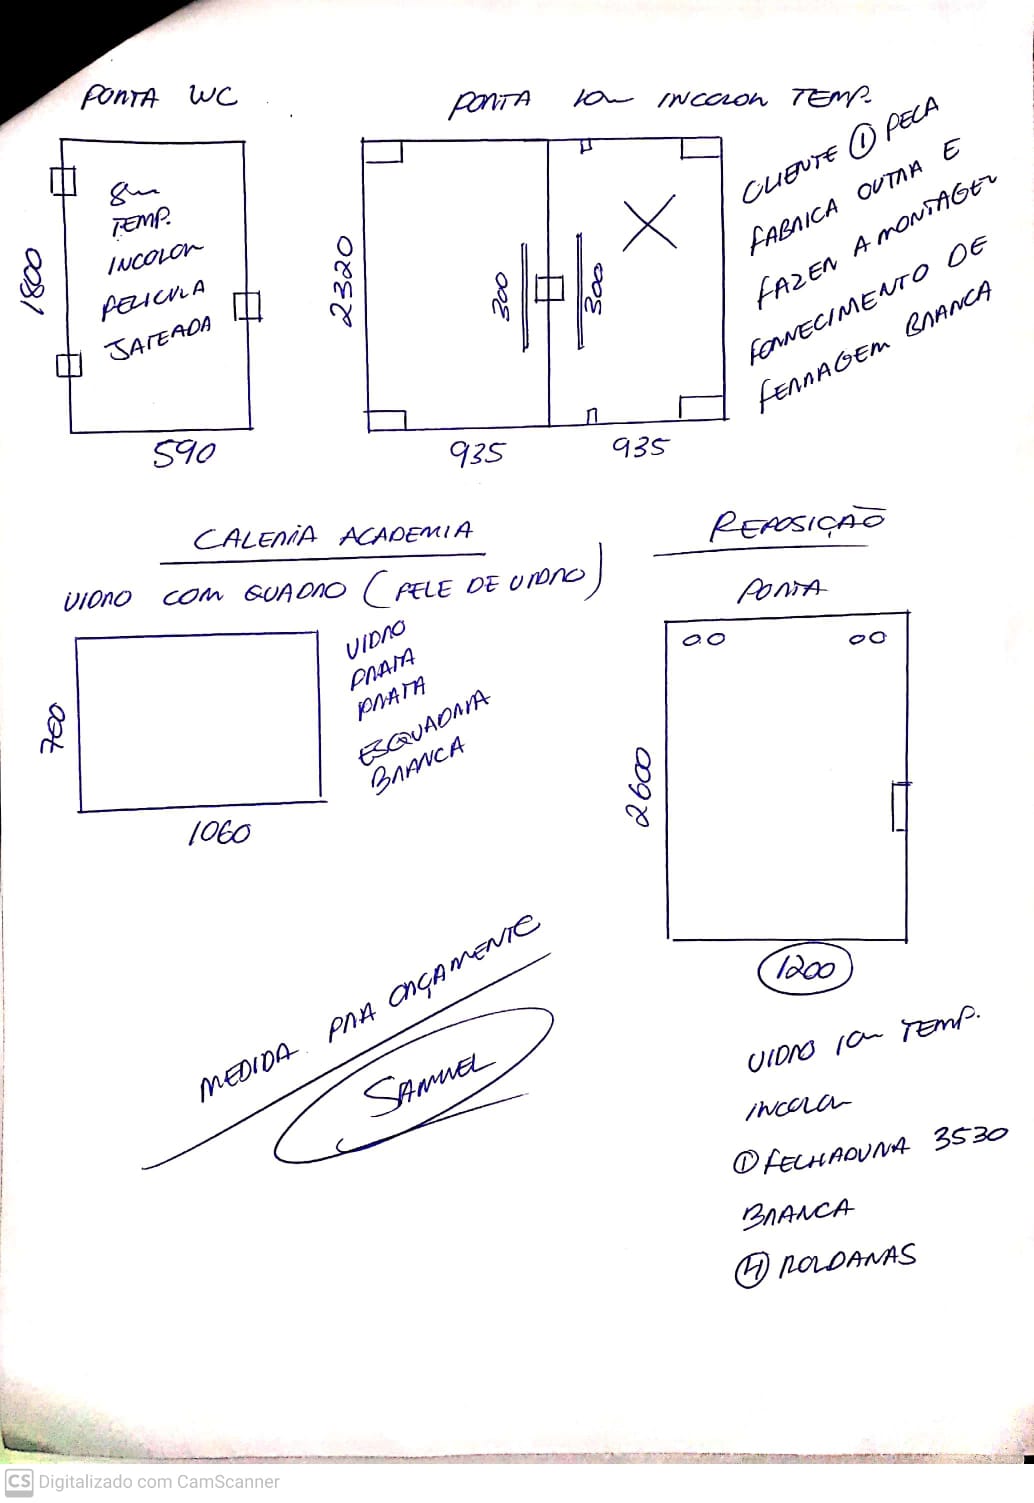 PORTA WC
8m
TEMP.
INCOLOR
PELICULA
JATEADA
1800
590
PORTA 10m INCOLOR TEMP.
2320
300
300
935
935
CLIENTE ① PEÇA
FABRICA OUTRA E
FAZER A MONTAGEM
FORNECIMENTO DE
FERRAGEM BRANCA
GALERIA ACADEMIA
VIDRO COM QUADRO (PELE DE VIDRO)
700
1060
VIDRO
PRATA
PRATA
ESQUADRIA
BRANCA
REPOSIÇÃO
PORTA
2600
1200
VIDRO 10m TEMP.
INCOLOR
① FECHADURA 3530
BRANCA
④ ROLDANAS
MEDIDA PRA ORÇAMENTE
SAMUEL
CS Digitalizado com CamScanner